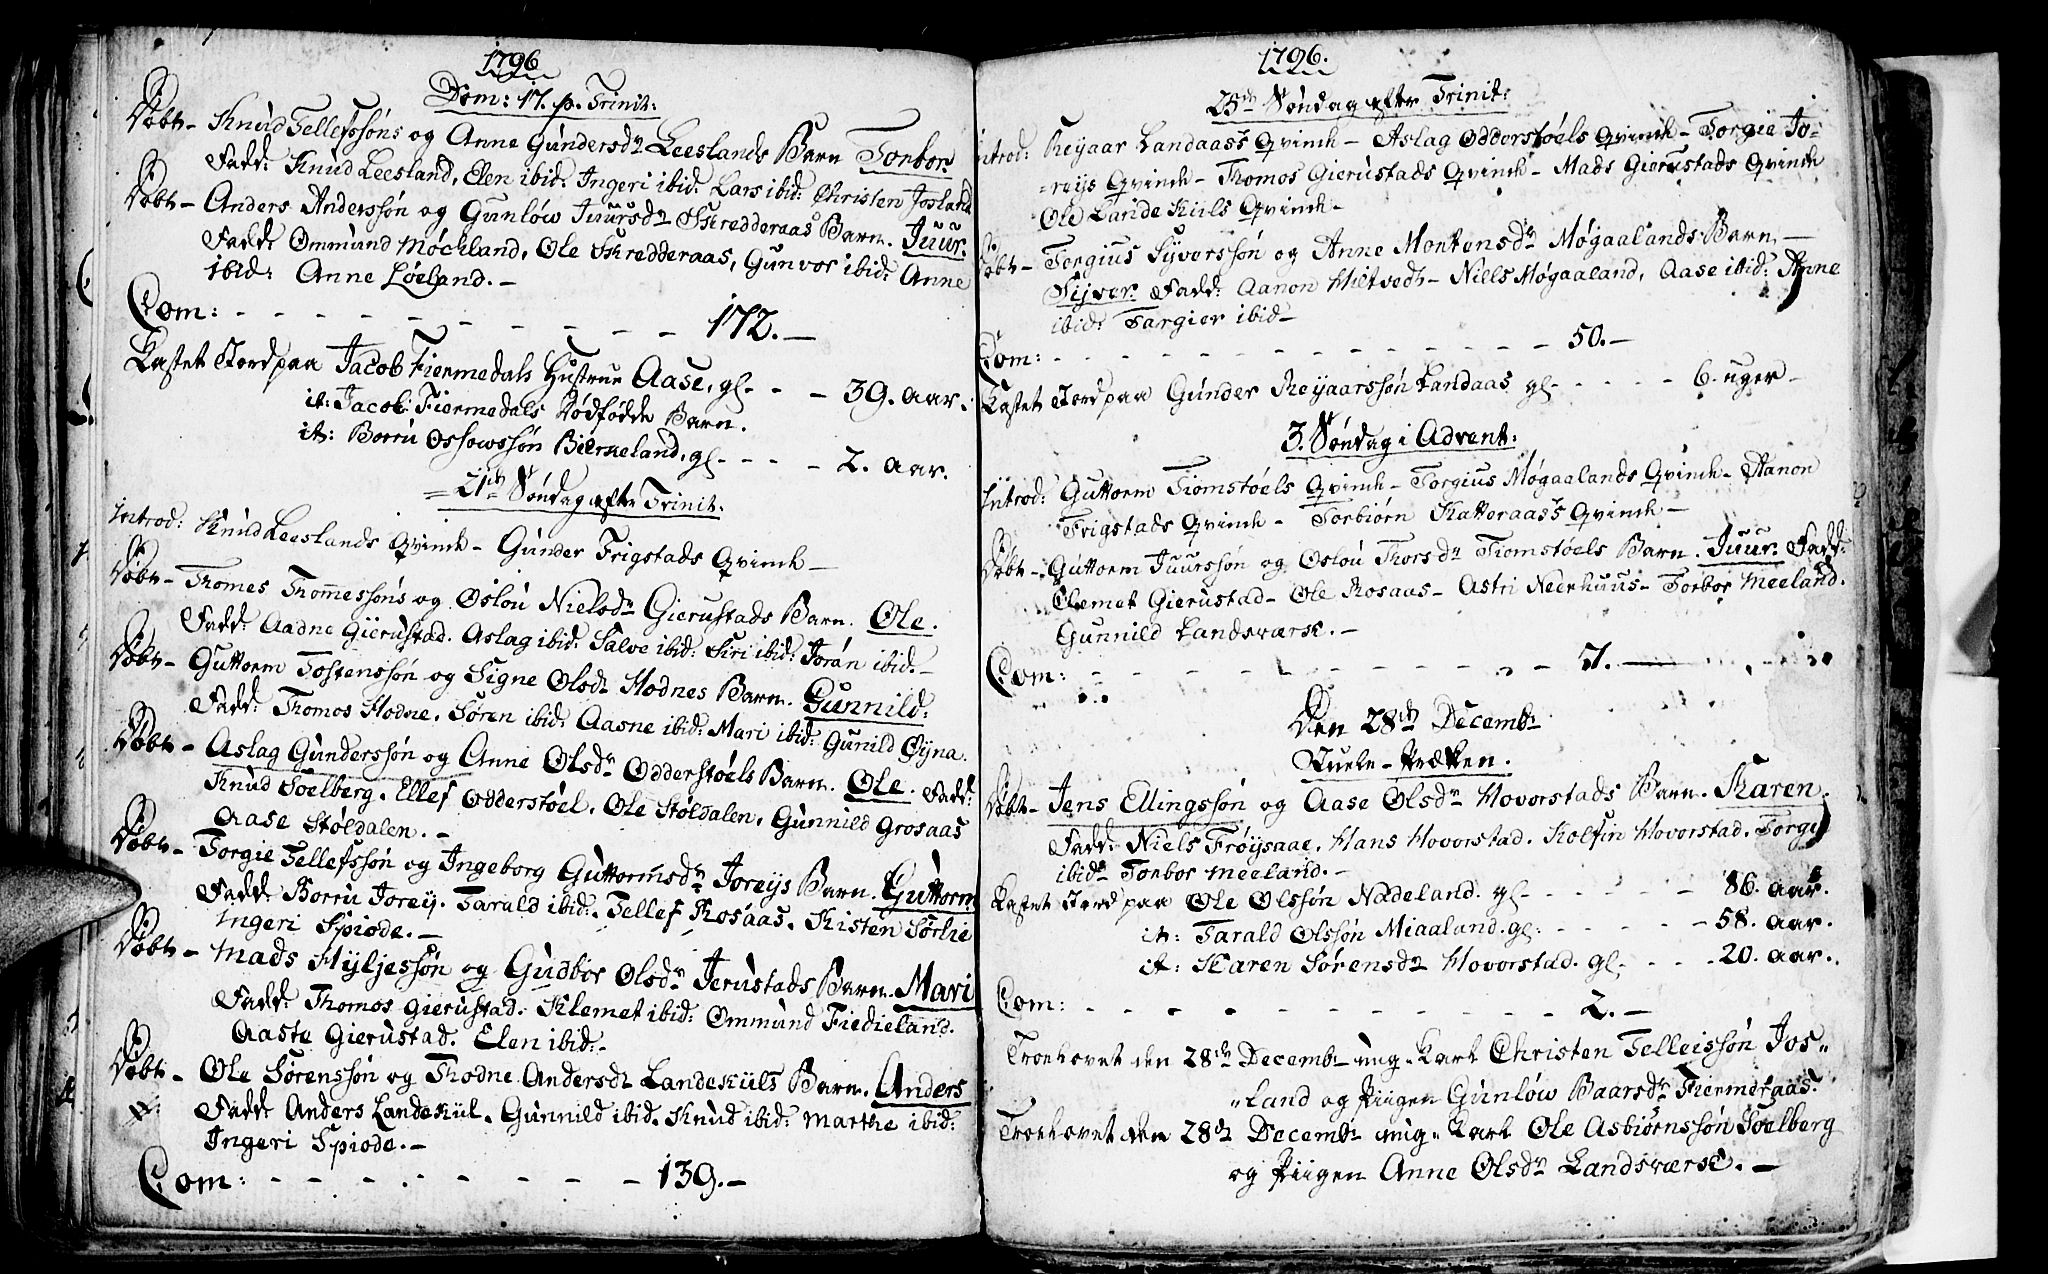 1796
Dom: 17. p. Trinit:
Døbt – Knud Tellefssøns og Anne Gundersdr Leeslands Barn Torbor.
Fadd: Knud Leesland, Elen ibid: Ingeri ibid: Lars ibid: Christen Josland
Døbt – Anders Anderssøn og Gunlow Juursdr Skredderaas Barn. Juur.
Fadd: Ommund Möckland, Ole Skredderaas, Gunvor ibid: Anne
ibid: Anne Løeland. –
Com: - - - - - - - - - - 172. –
Kastet Jord paa Jacob Fiermedals Hustrue Aase, gl. - - - 39. aar.
it: Jacob Fiermedals Dødfødde Barn.
it: Borru Ossowssøn Bierkeland, gl. - - - - 2. aar.
21de Søndag efter Trinit.
Introd: Knud Leeslands Qvinde – Gunder Frigstads Qvinde –
Døbt – Thomes Thommessøns og Oslou Nielsdr Gierustads Barn. Ole.
Fadd: Aadne Gierustad. Aslag ibid: Salve ibid: Siri ibid: Joran ibid. –
Døbt – Guttorm Tostenssøn og Signe Olsdr Hodnes Barn. Gunnild:
Fadd: Thomos Hodne. Søren ibid: Aasne ibid: Mari ibid: Gunild Øyna.
Døbt – Aslag Gunderssøn og Anne Olsdr Odderstøels Barn. Ole. Fadd:
Knud Soelberg. Ellef Odderstøel. Ole Støldalen. Gunnild Grosaas
Aase Støldalen. –
Døbt – Torgie Tellefssøn og Ingeborg Guttormsdr Joreys Barn. Guttorm
Fadd: Borru Jorey. Tarald ibid: Tellef Rosaas. Kisten Sørlie
Ingeri Spiode. –
Døbt – Mads Kyljessøn og Gudbor Olsdr Jerustads Barn. Mari
Fadd: Thomos Gierustad. Klemet ibid: Ommund Fiedieland.
Aaste Gierustad. Elen ibid. –
Døbt – Ole Sørenssøn og Thodne Andersdr Landekiils Barn. Anders
Fadd: Anders Landekiil. Gunnild ibid. Knud ibid: Marthe ibid:
Ingeri Spiode. –
Com: - - - - - - - - - 139. –
1796.
25de Søndag efter Trinit:
Introd: Reyaar Landaass Qvinde – Aslag Odderstøels Qvinde – Torgie Jo-
-reys Qvinde – Thomos Gierustads Qvinde – Mads Gierustads Qvinde
Ole Landekiils Qvinde –
Døbt – Torgius Syverssøn og Anne Mortensdr Møgaalands Barn –
Sijver. Fadd: Aanon Miltvedt – Niels Møgaaland, Aase ibid: Anne
ibid: Targier ibid –
Com: - - - - - - - - - - - - 50. –
Kastet Jord paa Gunder Reyaarssøn Landaas gl - - - - - 6. uger –
3. Søndag i Advent:
Introd: Guttorm Tiomstøels Qvinde – Torgius Møgaalands Qvinde – Aanon
Frigstads Qvinde – Torbiørn Katteraass Qvinde –
Døbt – Guttorm Juurssøn og Oslou Thorsdr Tiomstøels Barn. Juur. Fadd:
Clemet Gierustad – Ole Rosaas – Astri Neerhuus – Torbor Meeland.
Gunnild Landsværk. –
Com: - - - - - - - - - - - - 7. –
Den 28de Decembr
Siuele-Prædken.
Døbt – Jens Ellingssøn og Aase Olsdr Hovorstads Barn. Karen.
Fadd: Niels Frøysaae. Hans Hovorstad. Kolfin Hovorstad. Torge
ibid: Torbor Meeland. –
Kastet Jord paa Ole Olssøn Nadeland. gl - - - - - - 86. aar.
it: Tarald Olssøn Miaaland. gl: - - - - - - 58. aar.
it: Karen Sørensdr Hovorstad. gl. - - - - 20. aar.
Com: - - - - - - - - - - - - 2. –
Trolovet den 28de Decembr ung-karl Christen Telleissøn Jos-
-land og Piigen Gunlow Baarsdr Fiermeraas.
Trolovet den 28de Decembr ung-karl Ole Asbiørnssøn Soelberg
og Piigen Anne Olsdr Landsværk. –